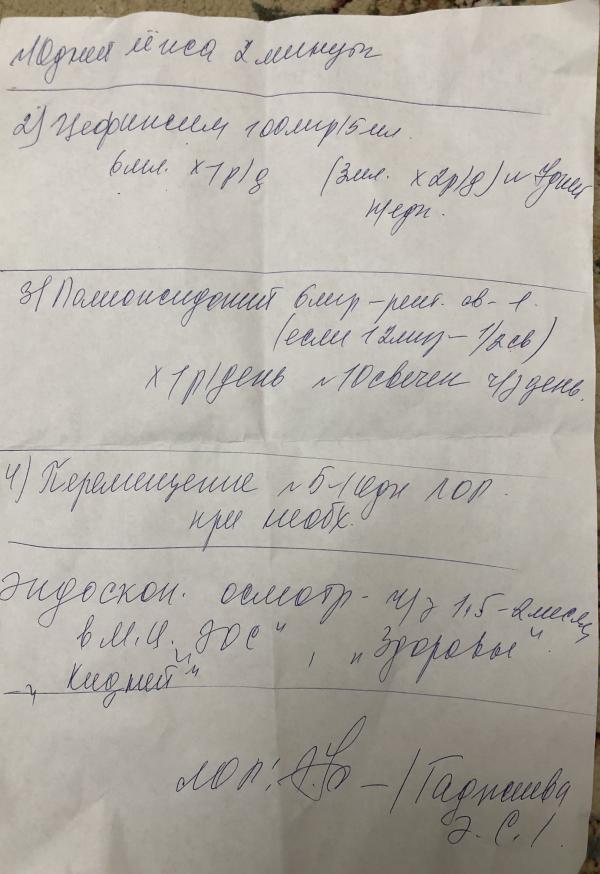 2 минуты
2) Цефиксим 100мгр/5мл.
6мл. х 1р/д (3мл. х 2р/д) N 7дней
3) Полиоксидоний 6мгр - рект. св-1.
(если 12мгр - 1/2св)
х 1р/день N 10 свечей ч/з день.
4) Перемещение N 5-7 едн ЛОР.
при необх.
Эндоскоп. осмотр - ч/з 1,5-2 месяц
в М.Ц. „ЭОС", „Здоровье".
„Кидней"
ЛОР: — / Гаджиева
Э. С. /